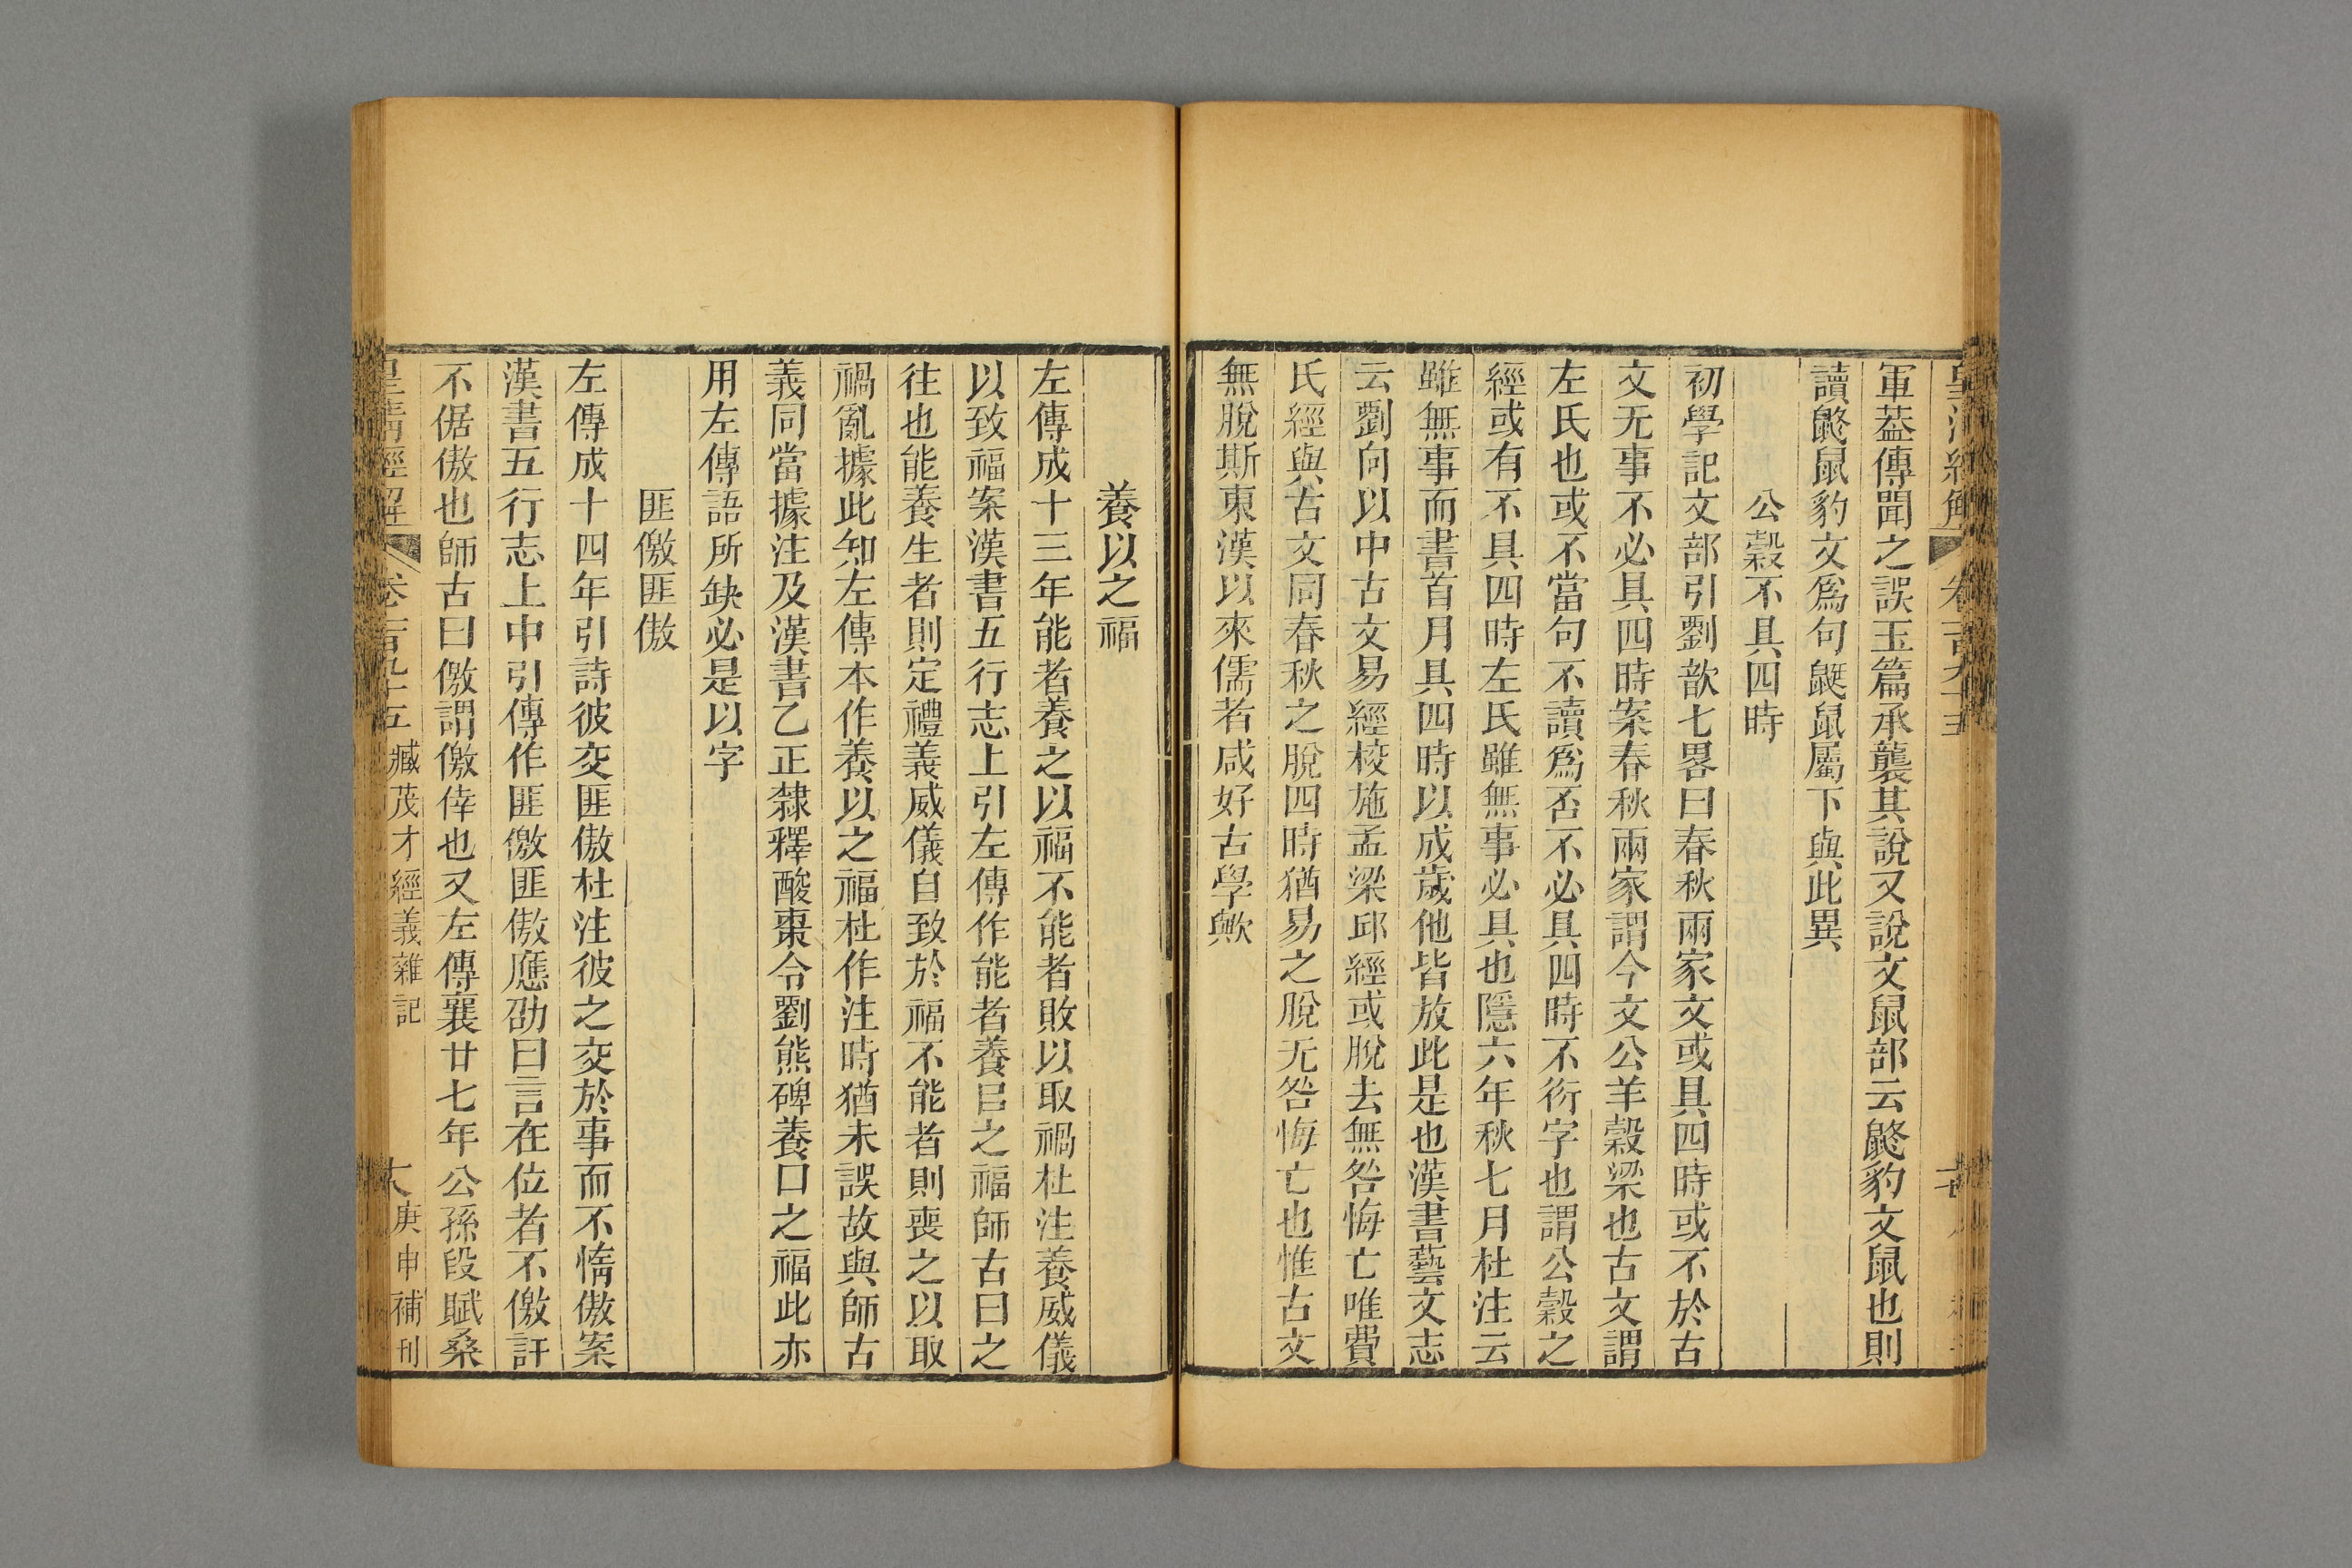 皇清經解 卷一百九十五
軍葢傳聞之誤玉篇承襲其說又說文鼠部云鼨豹文鼠也則
讀鼨鼠豹文爲句鼮鼠屬下與此異
公穀不具四時
初學記文部引劉歆七畧曰春秋兩家文或具四時或不於古
文无事不必具四時案春秋兩家謂今文公羊穀梁也古文謂
左氏也或不當句不讀爲否不必具四時不衍字也謂公穀之
經或有不具四時左氏雖無事必具也隱六年秋七月杜注云
雖無事而書首月具四時以成歲他皆放此是也漢書藝文志
云劉向以中古文易經校施孟梁邱經或脫去無咎悔亡唯費
氏經與古文同春秋之脫四時猶易之脫无咎悔亡也惟古文
無脫斯東漢以來儒者咸好古學歟
養以之福
左傳成十三年能者養之以福不能者敗以取禍杜注養威儀
以致福案漢書五行志上引左傳作能者養㠯之福師古曰之
往也能養生者則定禮義威儀自致於福不能者則喪之以取
禍亂據此知左傳本作養以之福杜作注時猶未誤故與師古
義同當據注及漢書乙正隸釋酸棗令劉熊碑養口之福此亦
用左傳語所缺必是以字
匪儌匪傲
左傳成十四年引詩彼交匪傲杜注彼之交於事而不惰傲案
漢書五行志上中引傳作匪儌匪傲應劭曰言在位者不儌訐
不倨傲也師古曰儌謂儌倖也又左傳襄廿七年公孫段賦桑
皇清經解 卷一百九十五 臧茂才經義雜記 庚申補刊